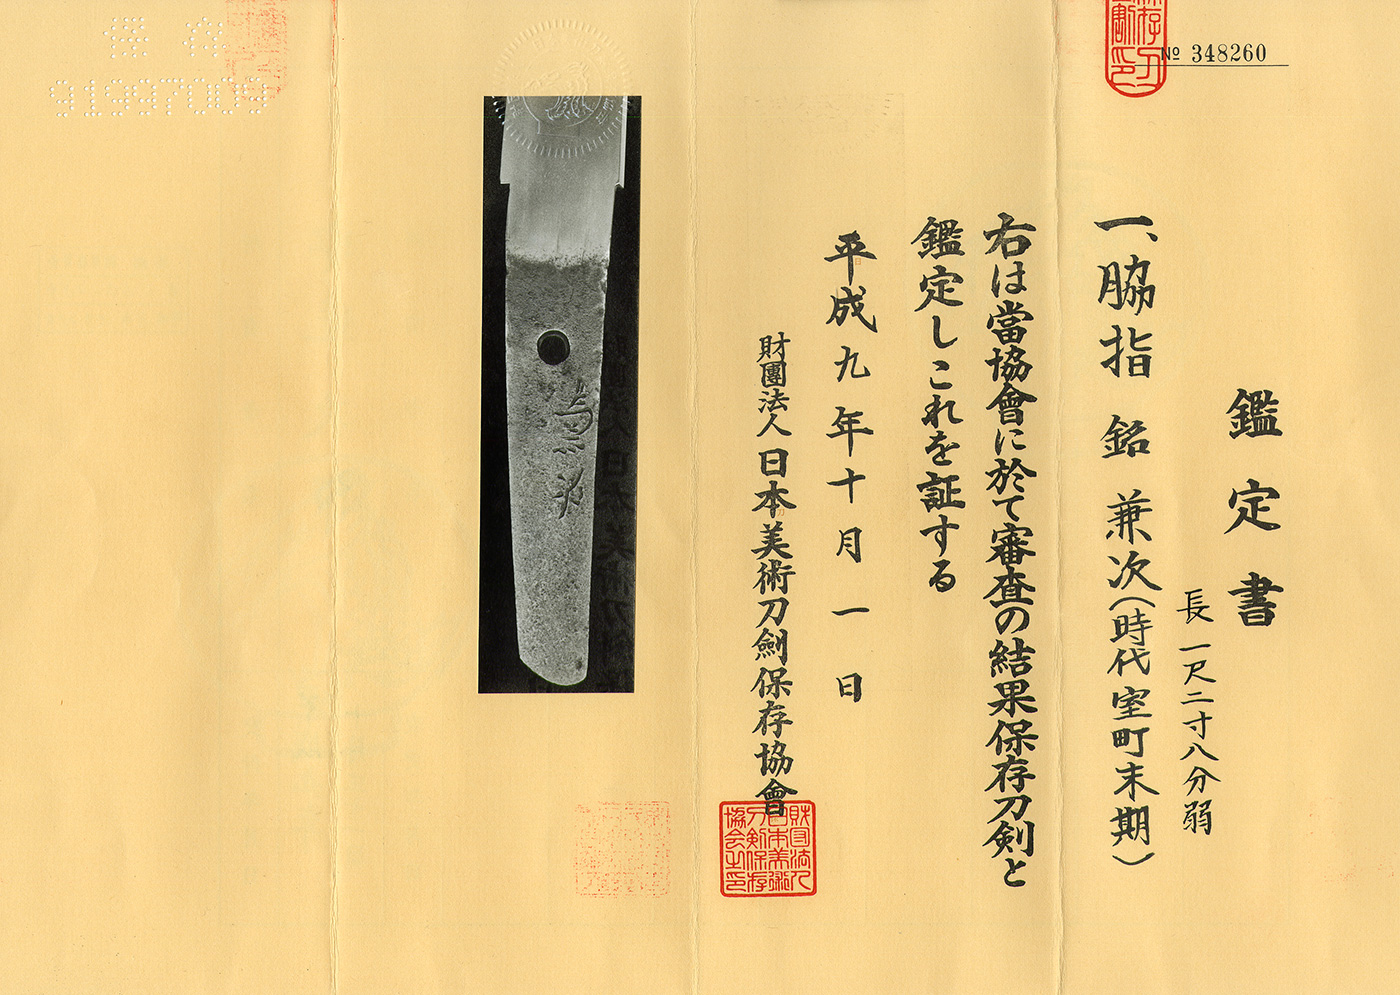 № 348260
鑑定書
長一尺二寸八分弱
一、脇指 銘 兼次(時代室町末期)
右は當協會に於て審査の結果保存刀剣と
鑑定しこれを証する
平成九年十月一日
財團法人日本美術刀劍保存協會
財団法人
日本美術
刀剣保存
協会之印
兼次
保存
91997009